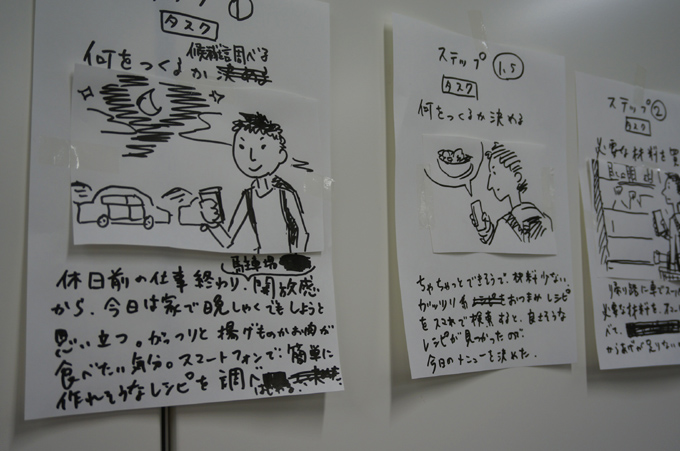 ステップ①
タスク
候補を調べる
何をつくるか
休日前の仕事終わり、駐車場
開放感
から、今日は家で晩しゃくでもしようと
思い立つ。がっつりと揚げものかお肉が
食べたい気分。スマートフォンで、簡単に
作れそうなレシピを調べ
ステップ 1.5
タスク
何をつくるか決める
ちゃちゃっとできそうで、材料少ない
ガッツリ系 おつまみレシピ
をスマホで検索すると、良さそうな
レシピが見つかったので
今日のメニューを決めた。
ステップ②
タスク
必要な材料を買
帰り道に車でスー
必要な材料を、
べて、
からあげが足りない